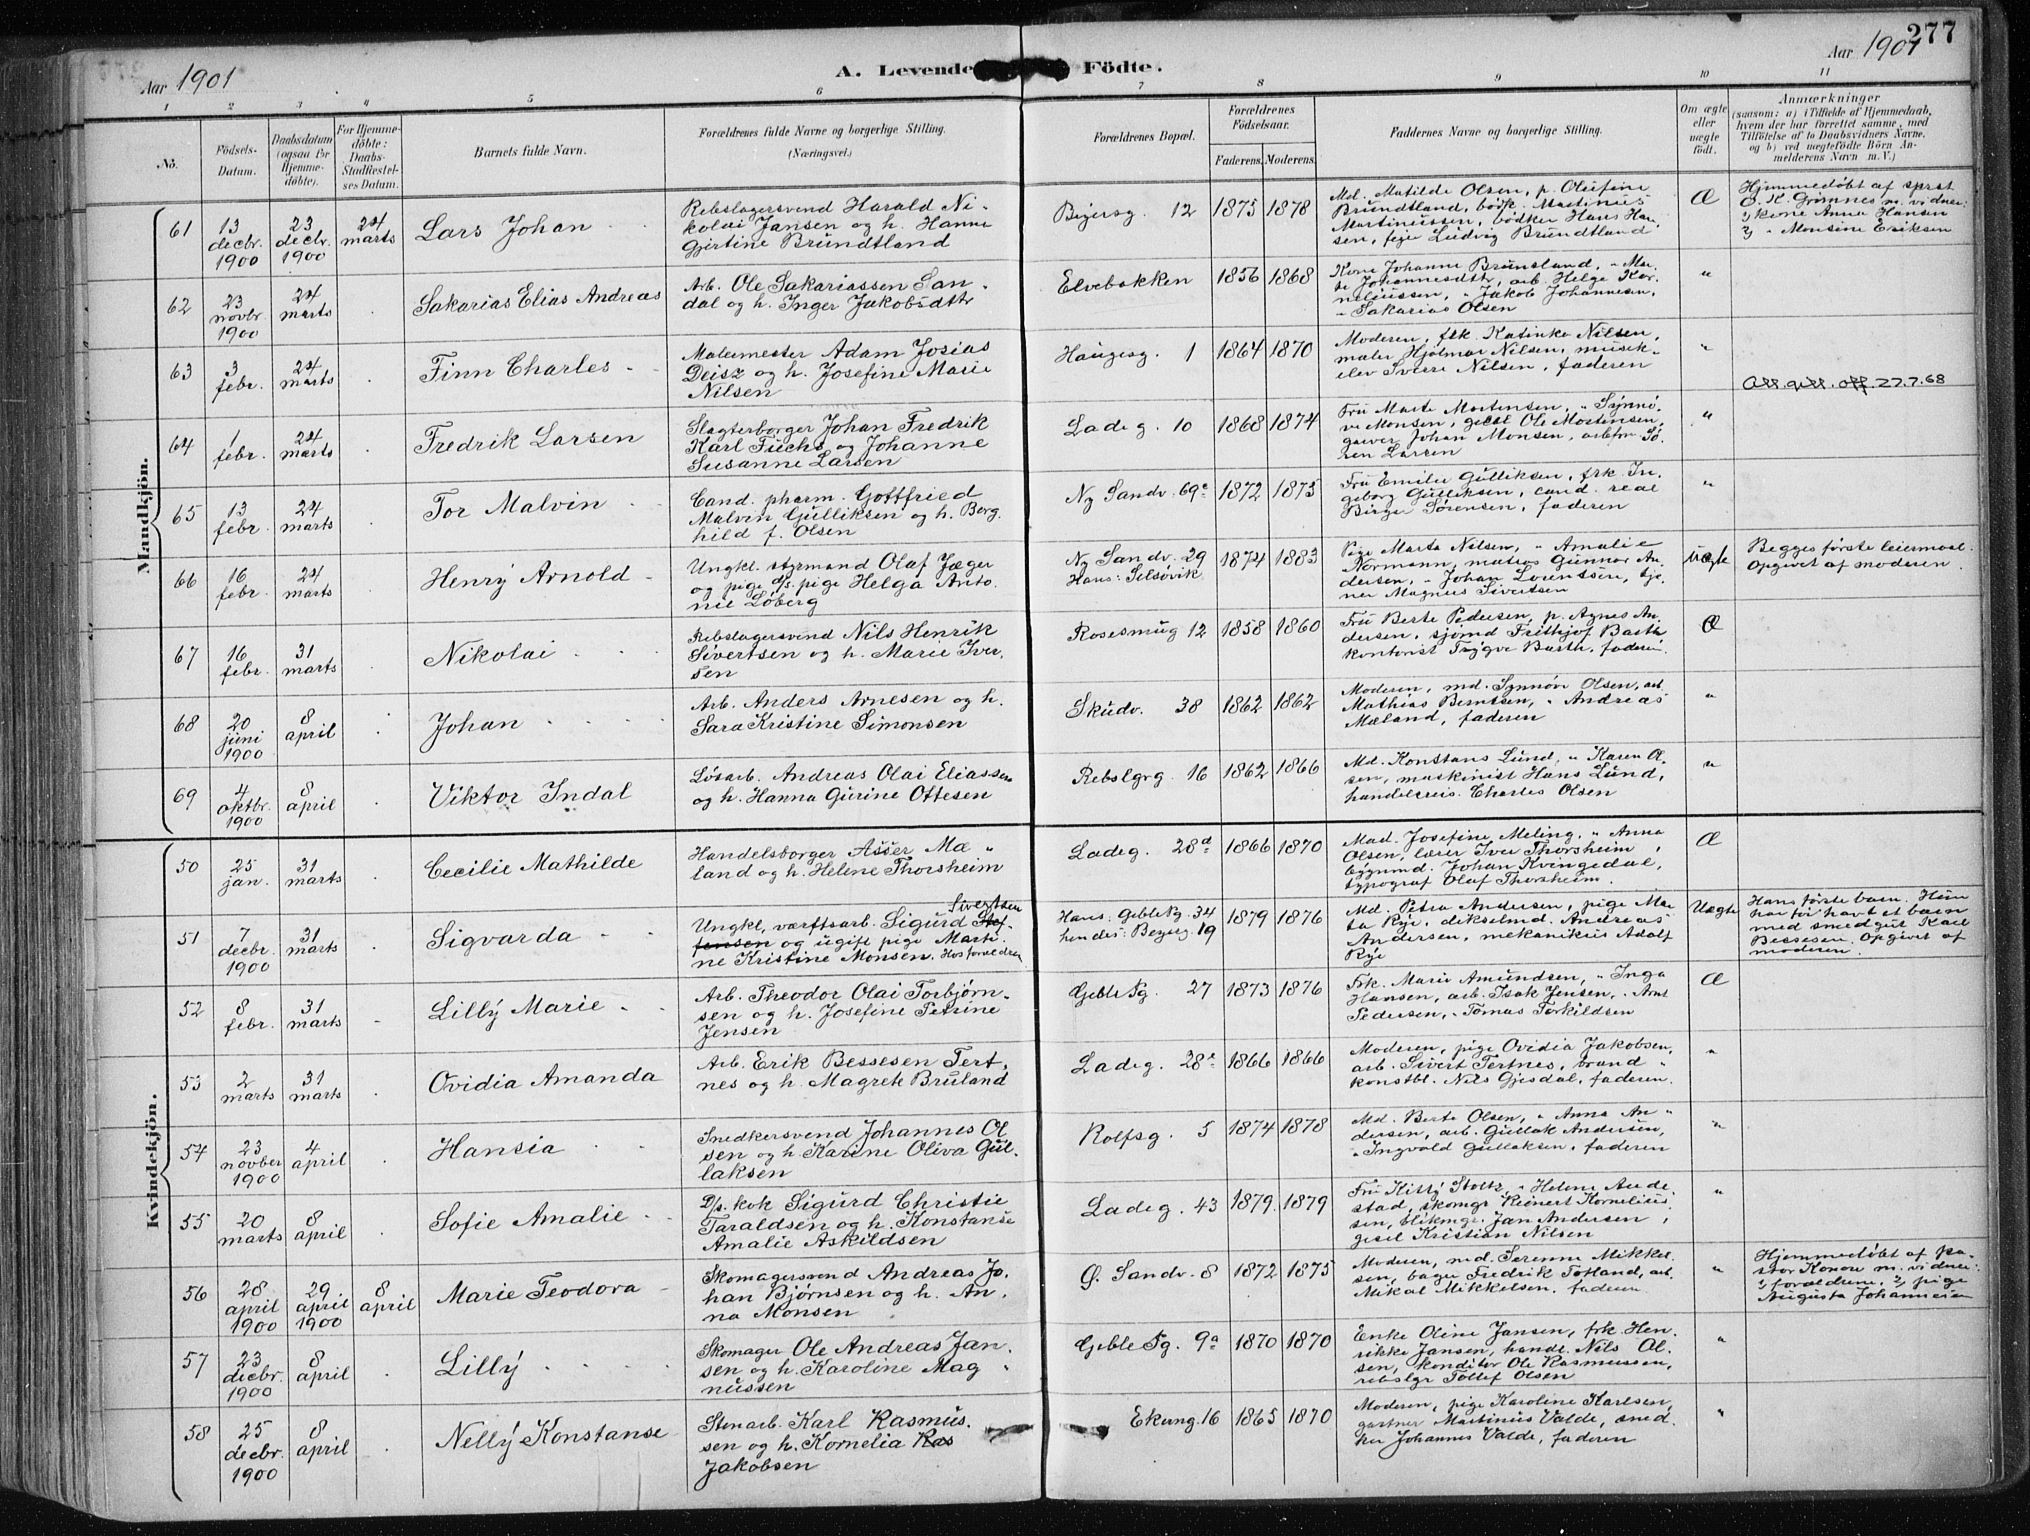 277
Aar 1901
A. Levende Födte.
Aar 1901
1 2 3 4 5 6 7 8 9 10 11
No.
Födsels-Datum.
Daabsdatum (ogsaa for Hjemmedöbte).
For Hjemmedöbte: Daabs-Stadfæstelses Datum.
Barnets fulde Navn.
Forældrenes fulde Navne og borgerlige Stilling. (Næringsvei.)
Forældrenes Bopæl.
Forældrenes Födselsaar.
Faderens. Moderens.
Faddernes Navne og borgerlige Stilling.
Om ægte eller uægte födt.
Anmærkninger
(saasom: a) i Tilfælde af Hjemmedaab, hvem der har forrettet samme, med Tilföielse af to Daabsvidners Navne, og b) ved uægtefödte Börn Anmelderens Navn m. V.)
Mandkjön.
61 13 decbr. 1900 23 decbr. 1900 24 marts Lars Johan
Rebslagersvend Harald Ni-
kolai Jansen og h. Hanne
Gjertine Brundtland
Beyersg. 12 1875 1878
Md. Matilde Olsen, p. Olufine
Brundtland, bødk. Martinus
Martinussen, bødker Hans Han
sen, Ludvig Brundtland.
Æ
Hjemmedøbt af
O. K. Grimnes m. vidner:
kone Anna Hansen
2) " Monsine Eriksen
62 23 novbr. 1900 24 marts Sakarias Elias Andreas
Arb. Ole Sakariassen San-
dal og h. Inger Jakobsdtr
Elvebakken 1856 1868
Kone Johanne Brunsland, " Mar
te Johannesdtr, arb. Helge Kor
neliussen, " Jakob Johannesen,
" Sakarias Olsen
"
63 3 febr. 24 marts Finn Charles
Malermester Adam Josias
Deisz og h. Josefine Marie
Nilsen
Haugesg. 1 1864 1870
Moderen, frk. Katinka Nilsen,
maler Hjalmar Nilsen, musik-
elev Sverre Nilsen, faderen
"
Att. gitt. off. 27.7.68
64 1 febr. 24 marts Fredrik Larsen
Slagterborger Johan Fredrik
Karl Fuchs og Johanne
Susanne Larsen
Ladeg. 10 1868 1874
Fru Marte Mortensen, " Synnø-
ve Monsen, gesel Ole Mortensen,
garver Johan Monsen, arbfm. Sø-
ren Larsen
"
65 13 febr. 24 marts Tor Malvin
Cand. pharm. Gottfried
Malvin Gulliksen og h. Borg
hild f. Olsen
Ny Sandv. 69a 1872 1875
Fru Emilie Gulliksen, frk. In
geborg Gulliksen, cand. real
Birger Sørensen, faderen
"
66 16 febr. 24 marts Henry Arnold
Ungkl. styrmand Olaf Jæger
og pige d/s. pige Helga Anto
nie Løberg
Ny Sandv. 29
Hans: Selsøvik 1874 1883
Pige Marta Nilsen, " Amalie
Normann, matros Gunnar An
dersen, " Johan Lorentsen, tje
ner Magnus Sivertsen
Uægte
Begges første leiermaal.
Opgivet af moderen.
67 16 febr. 31 marts Nikolai
Rebslagersvend Nils Henrik
Sivertsen og h. Marie Iver
sen
Rosesmug 12 1858 1860
Fru Berte Pedersen, p. Agnes An
dersen, sjømd Frithjof Barth,
kontorist Trygve Barth, faderen.
Æ
68 20 juni 1900 8 april Johan
Arb. Anders Arnesen og h.
Sara Kristine Simonsen
Skudv. 38 1862 1862
Moderen, md. Synnøve Olsen, arb.
Mathias Berntsen, " Andreas
Mæland, faderen
"
69 4 oktbr. 1900 8 april Viktor Indal
Løsarb. Andreas Olai Eliassen
og h. Hanna Gurine Ottesen
Rebslgrg 16 1862 1866
Md. Konstanse Lund, " Karen Ol
sen, maskinist Hans Lund,
handelsreis. Charles Olsen
"
Kvindekjön.
50 25 jan. 31 marts Cecilie Mathilde
Handelsborger Asser Mæ "
land og h. Helene Thorsheim
Ladeg. 28d 1866 1870
Mad. Josefine Meling, " Anna
Olsen, lærer Iver Thorsheim,
bygnmd. Johan Kvingedal,
typograf Olaf Thorsheim.
Æ
51 7 decbr. 1900 31 marts Sigvarda
Sivertsen
Ungkl. værftsarb. Sigurd Stef-
fensen og ugift pige Marti
ne Kristine Monsen. Hos forældren
Hans: Geble Pg. 34
hendes: Beyersg. 19 1879 1876
Md. Petra Andersen, pige Mar
ta Rye, dekselmd. Andreas
Andersen, mekanikus Adolf
Rye
Uægte
Hans første barn. Hun
har før havt et barn
med smedgut Karl
Bessesen. Opgivet af
moderen.
52 8 febr. 31 marts Lilly Marie
Arb. Theodor Olai Torbjørn-
sen og h. Josefine Petrine
Jensen
Geble Pg. 27 1873 1876
Frk. Marie Amundsen, " Inga
Hansen, arb. Isak Jensen, " Arnt
Pedersen, " Tomas Torkildsen
Æ
53 2 marts 31 marts Ovidia Amanda
Arb. Erik Bessesen Tert-
nes og h. Magrete Bruland
Ladeg. 28e 1866 1866
Moderen, pige Ovidia Jakobsen,
arb. Sivert Tertnes, brand "
konstbl. Nils Gjesdal, faderen.
"
54 23 novber 1900 4 april Hansia
Snedkersvend Johannes Ol
sen og h. Karine Oliva Gul-
laksen
Rolfsg. 5 1874 1878
Md. Berte Olsen, " Anna An "
dersen, arb. Gullak Andersen,
" Ingvald Gullaksen, faderen
"
55 20 marts 8 april Sofie Amalie
D/s. kok Sigurd Christie
Taraldsen og h. Konstanse
Amalie Askildsen
Ladeg. 43 1879 1879
Fru Kitty Stoltz, " Helene Aude
stad, skomgr Reinert Kornelius
sen, blikmgr. Jan Andersen,
gesel Kristian Nilsen
"
56 28 april 1900 29 april 1900 8 april Marie Teodora
Skomagersvend Andreas Jo-
han Bjørnsen og h. An-
na Monsen
Ø. Sandv. 8 1872 1875
Moderen, md. Serenne Mikkel
sen, bager Fredrik Totland, arb.
Mikal Mikkelsen, faderen
"
Hjemmedøbt af pa-
stor Konow m. vidner:
1) forældrene, 2) pige
Augusta Johannesen
57 23 decbr. 1900 8 april Lilly
Skomager Ole Andreas Jan-
sen og h. Karoline Mag "
nussen
Geble Pg. 9a 1870 1870
Enke Oline Jansen, frk. Hen-
rikke Jansen, handl. Nils Ol-
sen, konditor Ole Rasmussen,
rebslgr Tollef Olsen
"
58 25 decbr. 1900 8 april Nelly Konstanse
Stenarb. Karl Rasmus-
sen og h. Kornelia Ras
Jakobsen
Ekung. 16 1865 1870
Moderen, pige Karoline Karlsen,
gartner Martinus Valde, smed
ker Johannes Valde, faderen
"